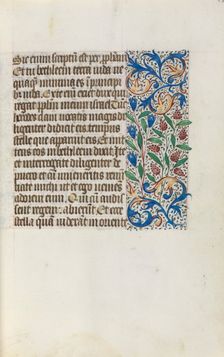 Sic enim scriptū est per pphetā
Et tu bethleem terra iuda ne
quaqꝫ minima es in principi
bꝰ iuda. Ex te enim exiet dux qui
regat pplm meum israel. Tūc
herodes clam vocatis magis di
ligenter didicit ab eis tempus
stelle que apparuit eis. Et mit
tens eos in bethleem dixit. Ite
et interrogate diligenter de
puero et cū inueneritis renū
ciate michi ut et ego veniēs
adorem eum. Qui cū audis
sent regem: abierūt. Et ecce
stella quā viderāt in oriente